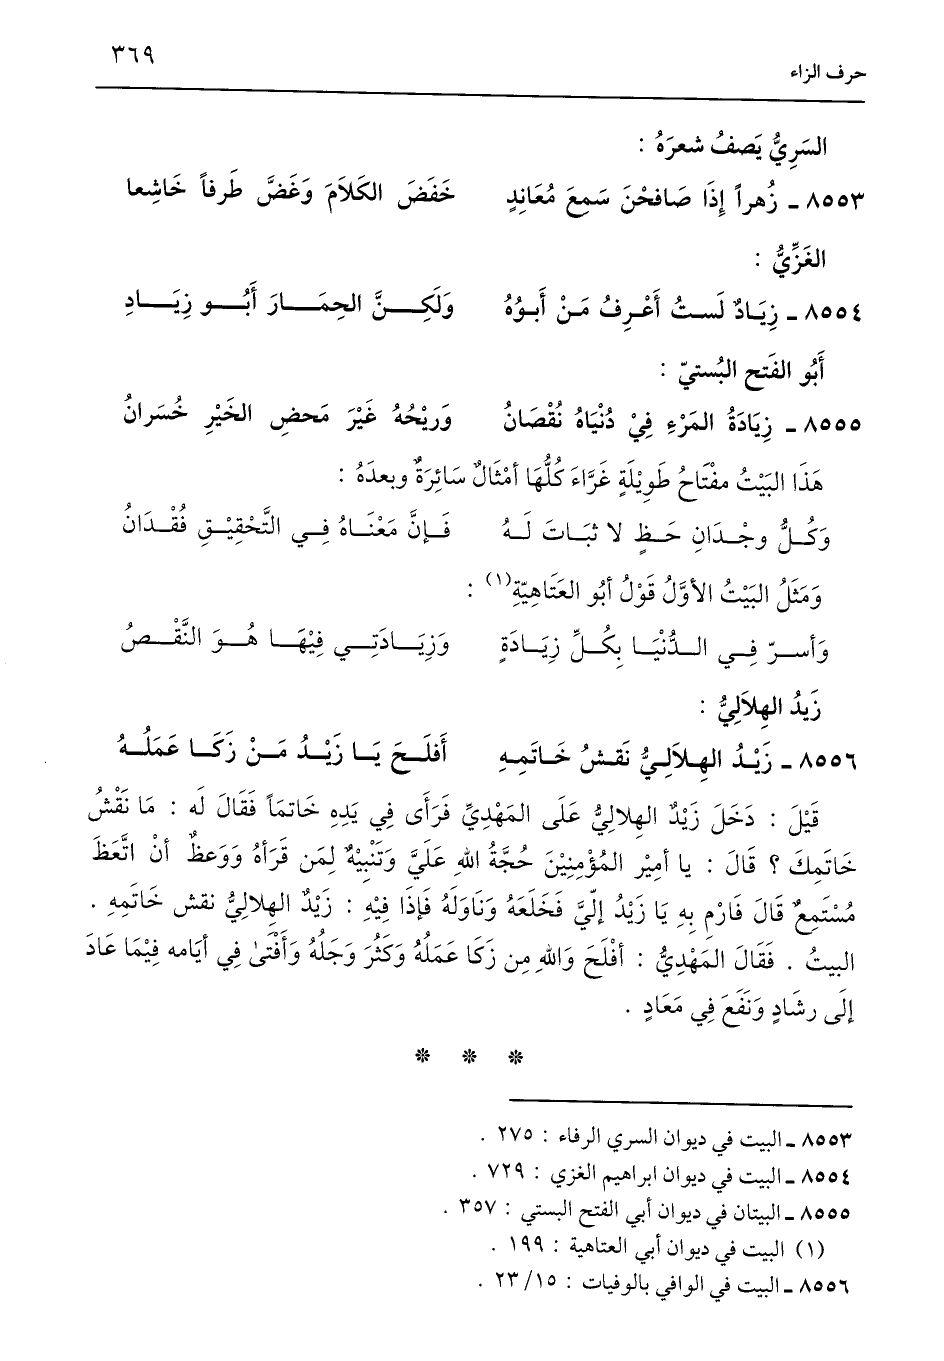 حرف الزاء ٣٦٩
السَرِيُّ يَصفُ شعرَهُ :
٨٥٥٣ ـ زُهراً إِذَا صَافحْنَ سَمِعَ مُعَانِدٍ خَفَضَ الكَلاَمَ وَغَضَّ طَرفاً خَاشِعا
الغَزِّيُّ :
٨٥٥٤ ـ زِيَادٌ لَستُ أَعْرِفُ مَنْ أَبوُهُ وَلَكِنَّ الحِمَارَ أَبُو زِيَادِ
أَبُو الفَتح البُستيّ :
٨٥٥٥ ـ زِيَادَةُ المَرْءِ فِيْ دُنْيَاهُ نُقْصَانُ وَرِبْحُهُ غَيْرَ مَحضِ الخَيْرِ خُسَرانُ
هَذَا البَيْتُ مفْتَاحُ طَوِيْلَةٍ غَرَّاءَ كُلُّهَا أمْثَالٌ سَائِرَةٌ وبعدَهُ :
وَكُلُّ وجْدَانِ حَظٍ لا ثبَاتَ لَهُ فَإنَّ مَعْنَاهُ فِي التَّحْقِيْقِ فُقْدَانُ
وَمَثَلُ البَيْتُ الأوَّلُ قَوْلُ أبُو العَتَاهِيّةِ(١) :
وَأسرّ فِي الدُّنْيَا بِكُلِّ زِيَادَةٍ وَزِيَادَتِي فِيْهَا هُوَ النَّقْصُ
زَيدُ الهِلاَلِيُّ :
٨٥٥٦ ـ زَيْدُ الهِلاَلِيُّ نَقشُ خَاتمِهِ أَفلَحَ يَا زَيْدُ مَنْ زَكَا عَمَلُهُ
قَيْلَ : دَخَلَ زَيْدٌ الهِلالِيُّ عَلَى المَهْدِيِّ فَرَأى فِي يَدِهِ خَاتمَاً فَقَالَ لَه : مَا نَقْشُ
خَاتَمِكَ ؟ قَالَ : يا أمِيْر المُؤْمِنِيْنَ حُجَّةُ اللهِ عَلَيَّ وَتَنْبِيْهٌ لِمَن قَرَأهُ وَوَعظٌ أنْ اتَّعَظَ
مُسْتَمِعٌ قَالَ فَارْمِ بِهِ يَا زَيْدُ إلَيّ فَخَلَعَهُ وَنَاوَلَهُ فَإذَا فِيْهِ : زَيْدٌ الهِلالِيُّ نقش خَاتَمِهِ .
البيتُ . فَقَالَ المَهْدِيُّ : أفْلَحَ وَاللهِ مِن زَكَا عَملُهُ وَكَثُرَ وَجَلُهُ وَأَفْتَىٰ فِي أيَامه فِيْمَا عَادَ
إلَى رشَادٍ وَنَفَعَ فِي مَعَادٍ .
* * *
٨٥٥٣ ـ البيت في ديوان السري الرفاء : ٢٧٥ .
٨٥٥٤ ـ البيت في ديوان ابراهيم الغزي : ٧٢٩ .
٨٥٥٥ ـ البيتان في ديوان أبي الفتح البستي : ٣٥٧ .
(١) البيت في ديوان أبي العتاهية : ١٩٩ .
٨٥٥٦ ـ البيت في الوافي بالوفيات : ١٥/ ٢٣ .